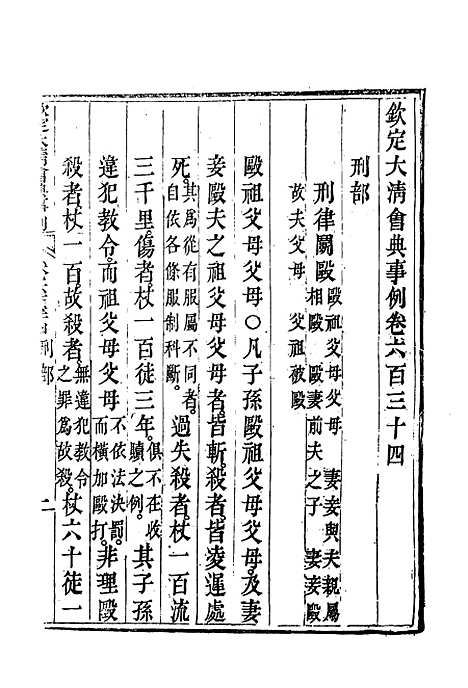 欽定大清會典事例卷六百三十四
刑部
刑律鬭毆毆祖父母父母　妻妾與夫親屬相毆　毆妻前夫之子　妻妾毆故夫父母　父祖被毆
毆祖父母父母○凡子孫毆祖父母父母及妻
妾毆夫之祖父母父母者皆斬殺者皆凌遲處
死其爲從有服屬不同者自依各條服制科斷。過失殺者杖一百流
三千里傷者杖一百徒三年俱不在收贖之例。其子孫
違犯教令而祖父母父母不依法決罰而橫加毆打。非理毆
殺者杖一百故殺者無違犯教令之罪爲故殺。杖六十徒一
刑部
二